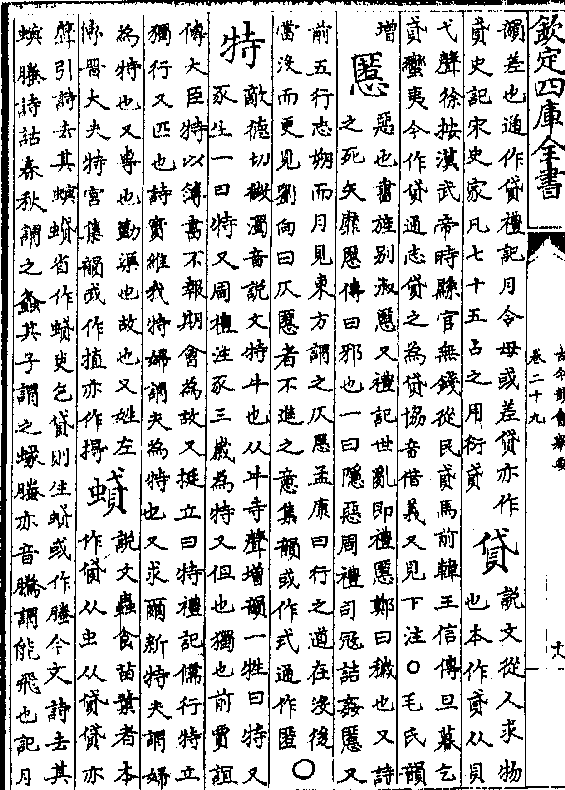 欽定四庫全書
古今韻會舉要
卷二十九
十八
韻差也通作貸禮記月令毋或差貸亦作
貣史記宋史家凡七十五占之用衍貣
貸
說文從人求物
也本作貣从貝
弋聲徐按漢武帝時縣官無錢從民貣馬前韓王信傳旦暮乞
貣蠻夷今作貸通志貸之為貸協音借義又見下注○毛氏韻
增
慝
惡也書旌别淑慝又禮記世亂即禮慝鄭曰穢也又詩
之死矢靡慝傳曰邪也一曰隱惡周禮司冦詰姦慝又
前五行志朔而月見東方謂之仄慝孟康曰行之遲在後
當沒而更見劉向曰仄慝者不進之意集韻或作忒通作匿○
特
敵德切徵濁音說文特牛也从牛寺聲增韻一牲曰特又
豕生一曰特又周禮注豕三歲為特又但也獨也前賈誼
傳大臣特以簿書不報期會為故又挺立曰特禮記儒行特立
獨行又匹也詩實維我特婦謂夫為特也又求爾新特夫謂婦
為特也又專也勤渠也故也又姓左
傳晉大夫特宫集韻或作犆亦作㨙
蟘
說文蟲食苗葉者本
作貸从虫从貸貸亦
聲引詩去其螟蟘省作蟘吏乞貸則生蟘或作螣今文詩去其
螟螣詩詁春秋謂之螽其子謂之蝝螣亦音騰謂能飛也記月